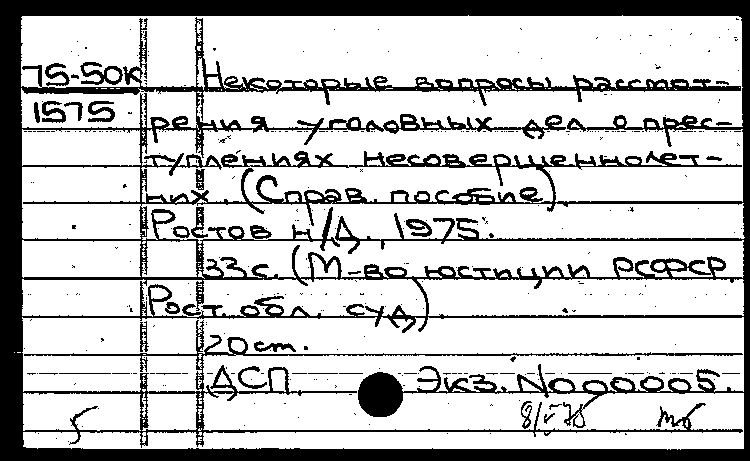 75-50к Некоторые вопросы рассмот-
1575
рения уголовных дел о прес-
туплениях несовершеннолет-
них. (Справ. пособие).
Ростов н/Д., 1975.
33с. (М-во юстиции РСФСР.
Рост. обл. суд).
20см.
ДСП. Экз. №000005.
5